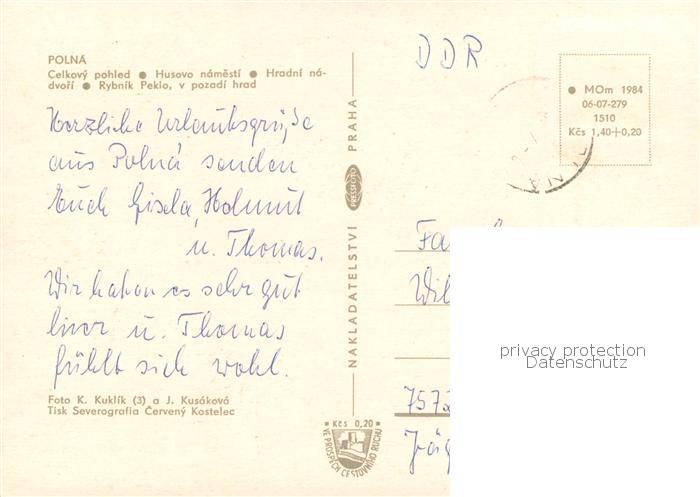 POLNÁ
Celkový pohled ● Husovo náměstí ● Hradní ná-
dvoří ● Rybník Peklo, v pozadí hrad
Herzliche Urlaubsgrüße
aus Polná senden
Euch Gisela, Helmut
u. Thomas.
Wir haben es sehr gut
hier u. Thomas
fühlt sich wohl.
Foto K. Kuklík (3) a J. Kusáková
Tisk Severografia Červený Kostelec
NAKLADATELSTVÍ PRESSFOTO PRAHA
Kčs 0,20
VE PROSPĚCH CESTOVNÍHO RUCHU
DDR
● MOm 1984
06-07-279
1510
Kčs 1,40+0,20
Fa
Wil
757
Jäg
privacy protection
Datenschutz